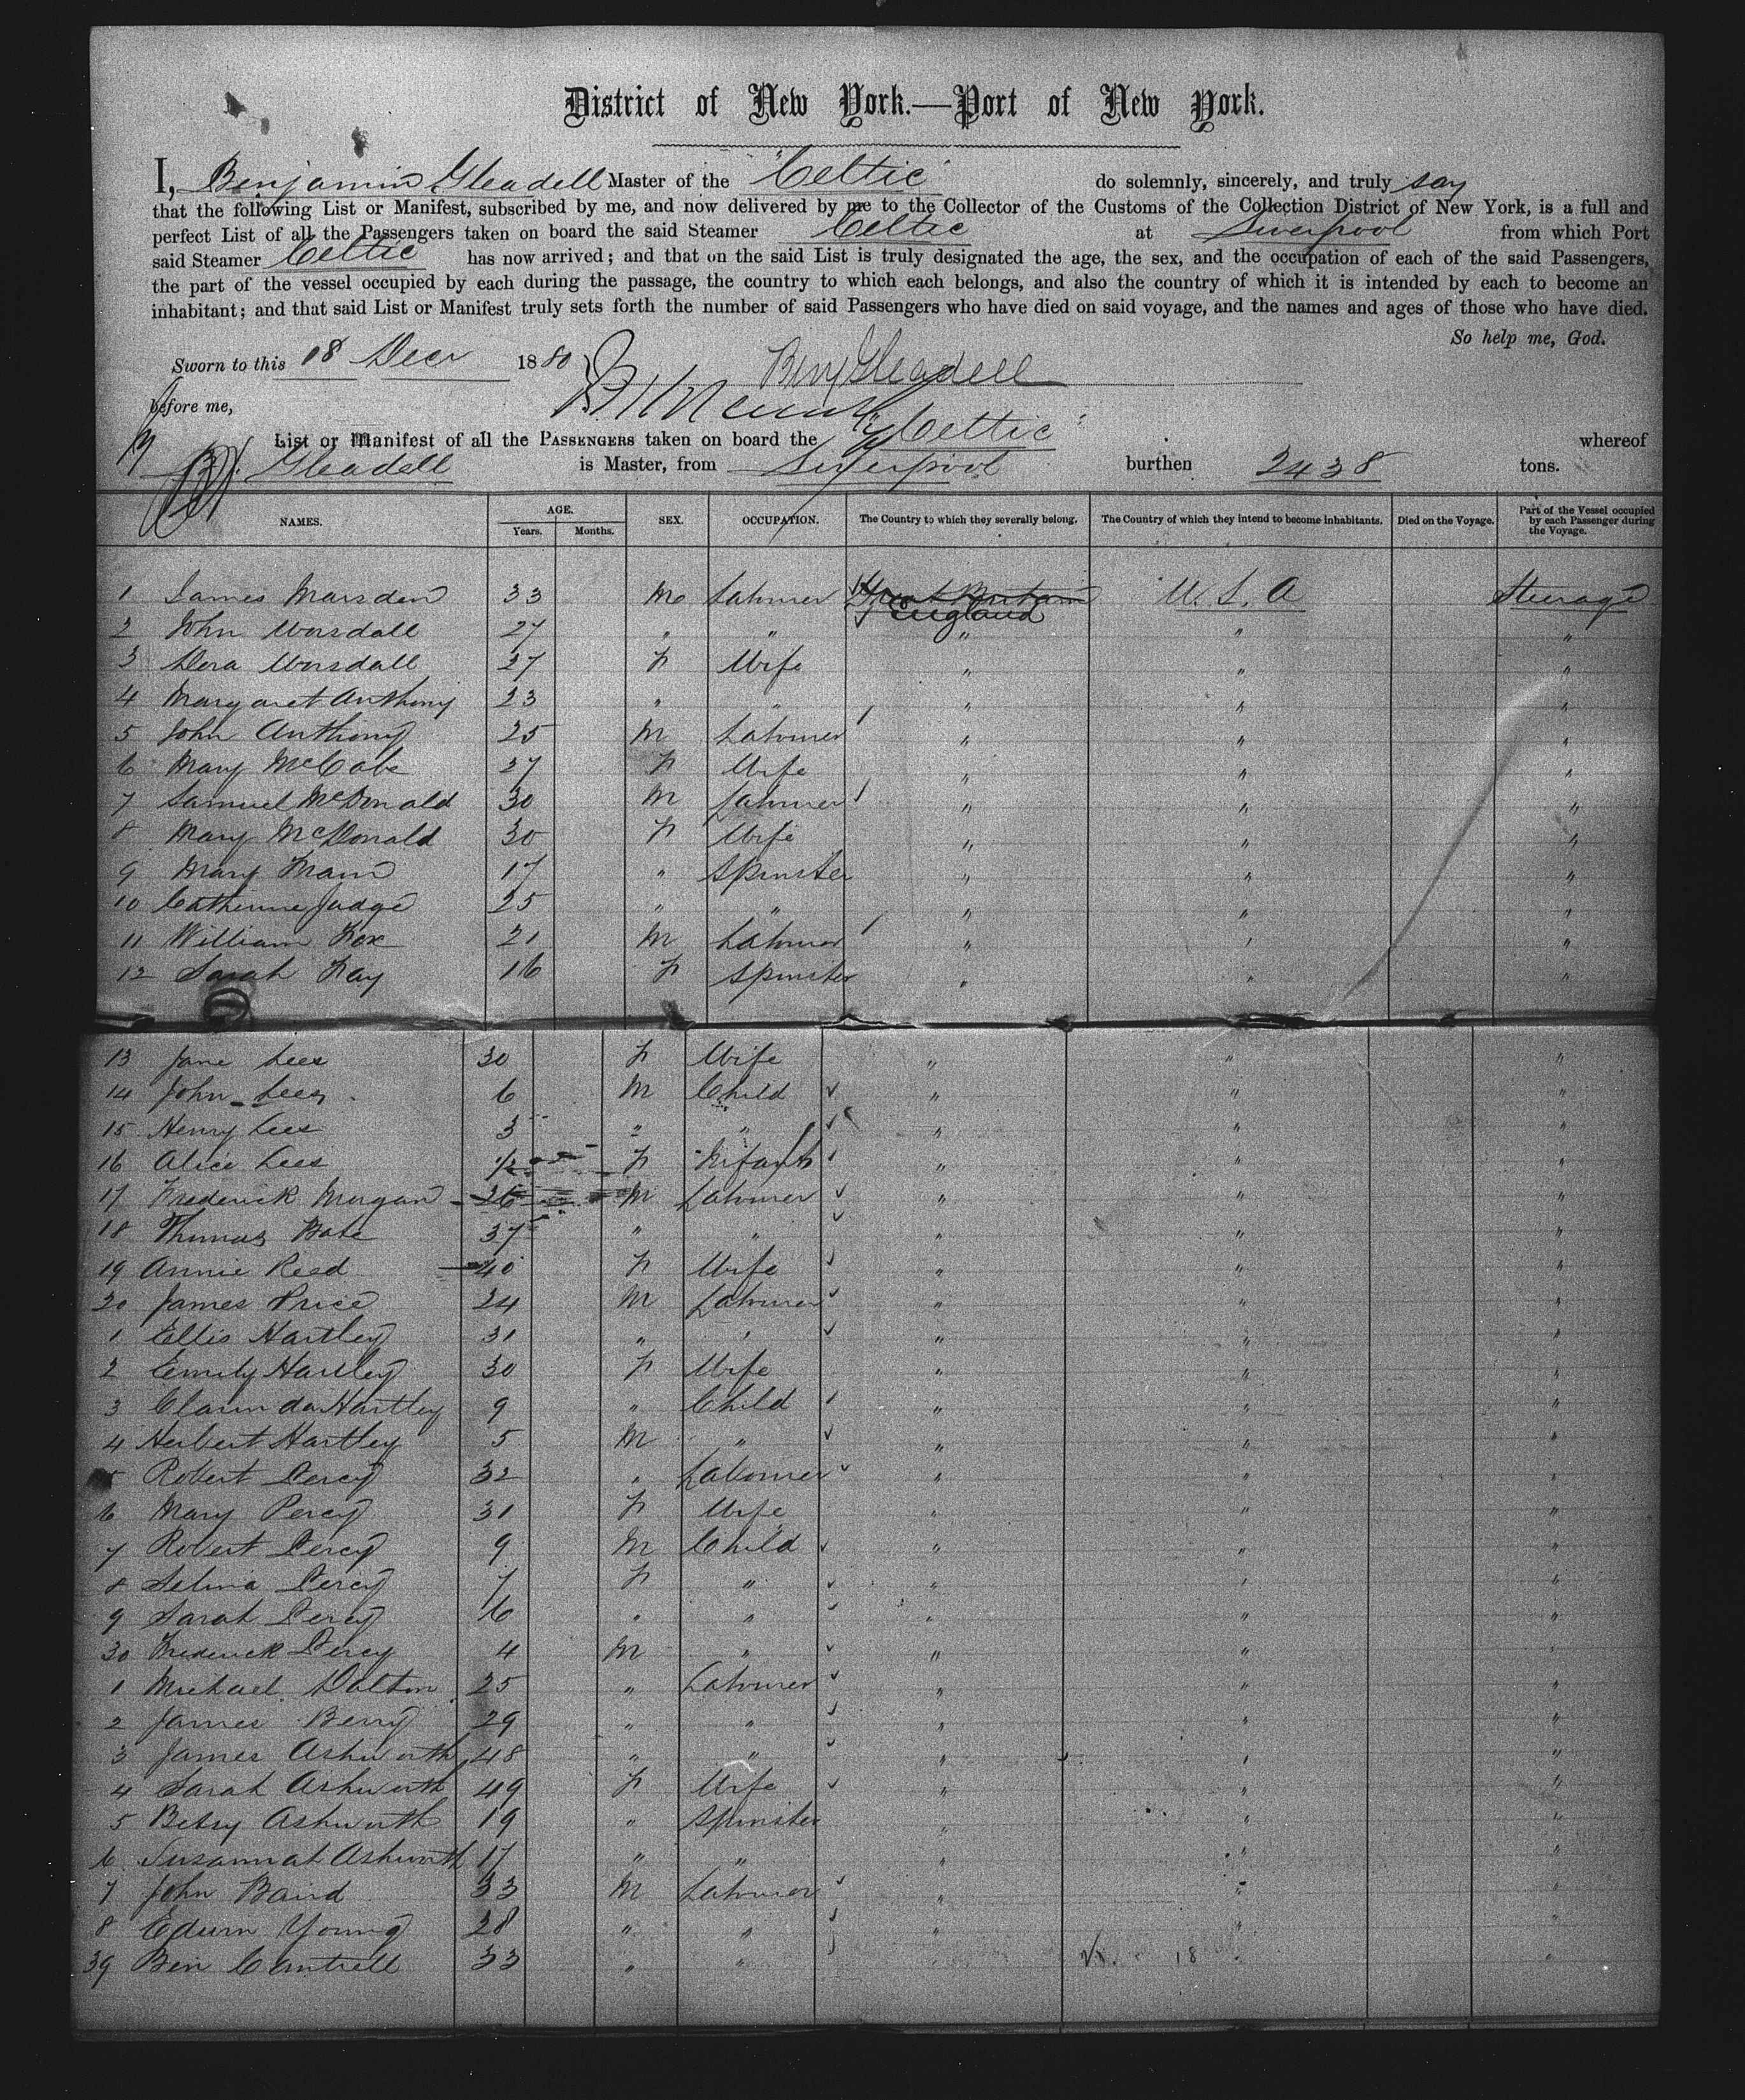 District of New York.—Port of New York.
I, Benjamin Gleadell Master of the "Celtic" do solemnly, sincerely, and truly say
that the following List or Manifest, subscribed by me, and now delivered by me to the Collector of the Customs of the Collection District of New York, is a full and
perfect List of all the Passengers taken on board the said Steamer Celtic at Liverpool from which Port
said Steamer Celtic has now arrived; and that on the said List is truly designated the age, the sex, and the occupation of each of the said Passengers,
the part of the vessel occupied by each during the passage, the country to which each belongs, and also the country of which it is intended by each to become an
inhabitant; and that said List or Manifest truly sets forth the number of said Passengers who have died on said voyage, and the names and ages of those who have died.
So help me, God.
Sworn to this 18 Decr 1880 Benj Gleadell
before me,
List or Manifest of all the Passengers taken on board the "Celtic" whereof
B. Gleadell is Master, from Liverpool burthen 2438 tons.
NAMES. AGE. Years. Months. SEX. OCCUPATION. The Country to which they severally belong. The Country of which they intend to become inhabitants. Died on the Voyage. Part of the Vessel occupied by each Passenger during the Voyage.
1 James Marsden 33 M Labourer Great Britain England U.S.A Steerage
2 John Worsdall 27 " " " " "
3 Dora Worsdall 27 F Wife " " "
4 Margaret Anthony 23 " " " " "
5 John Anthony 25 M Labourer " " "
6 Mary McCabe 27 F Wife " " "
7 Samuel McDonald 30 M Labourer " " "
8 Mary McDonald 30 F Wife " " "
9 Mary Mann 17 " Spinster " " "
10 Catherine Judge 25 " " " " "
11 William Fox 21 M Labourer " " "
12 Sarah Kay 16 F Spinster " " "
13 Jane Lees 30 F Wife " " "
14 John Lees 6 M Child " " "
15 Henry Lees 3 " " " " "
16 Alice Lees 1/2 F Infant " " "
17 Frederick Morgan 26 M Labourer " " "
18 Thomas Bate 37 " " " " "
19 Annie Reed 40 F Wife " " "
20 James Price 24 M Labourer " " "
1 Ellis Hartley 31 " " " " "
2 Emily Hartley 30 F Wife " " "
3 Clarinda Hartley 9 " Child " " "
4 Herbert Hartley 5 M " " " "
5 Robert Percy 32 " Labourer " " "
6 Mary Percy 31 F Wife " " "
7 Robert Percy 9 M Child " " "
8 Selina Percy 7 F " " " "
9 Sarah Percy 6 " " " " "
30 Frederick Percy 4 M " " " "
1 Michael Dalton 25 " Labourer " " "
2 James Berry 29 " " " " "
3 James Ashworth 48 " " " " "
4 Sarah Ashworth 49 F Wife " " "
5 Betsy Ashworth 19 " Spinster " " "
6 Susannah Ashworth 17 " " " " "
7 John Baird 33 M Labourer " " "
8 Edwin Young 28 " " " " "
39 Ben Cantrell 33 " " " 18 " "